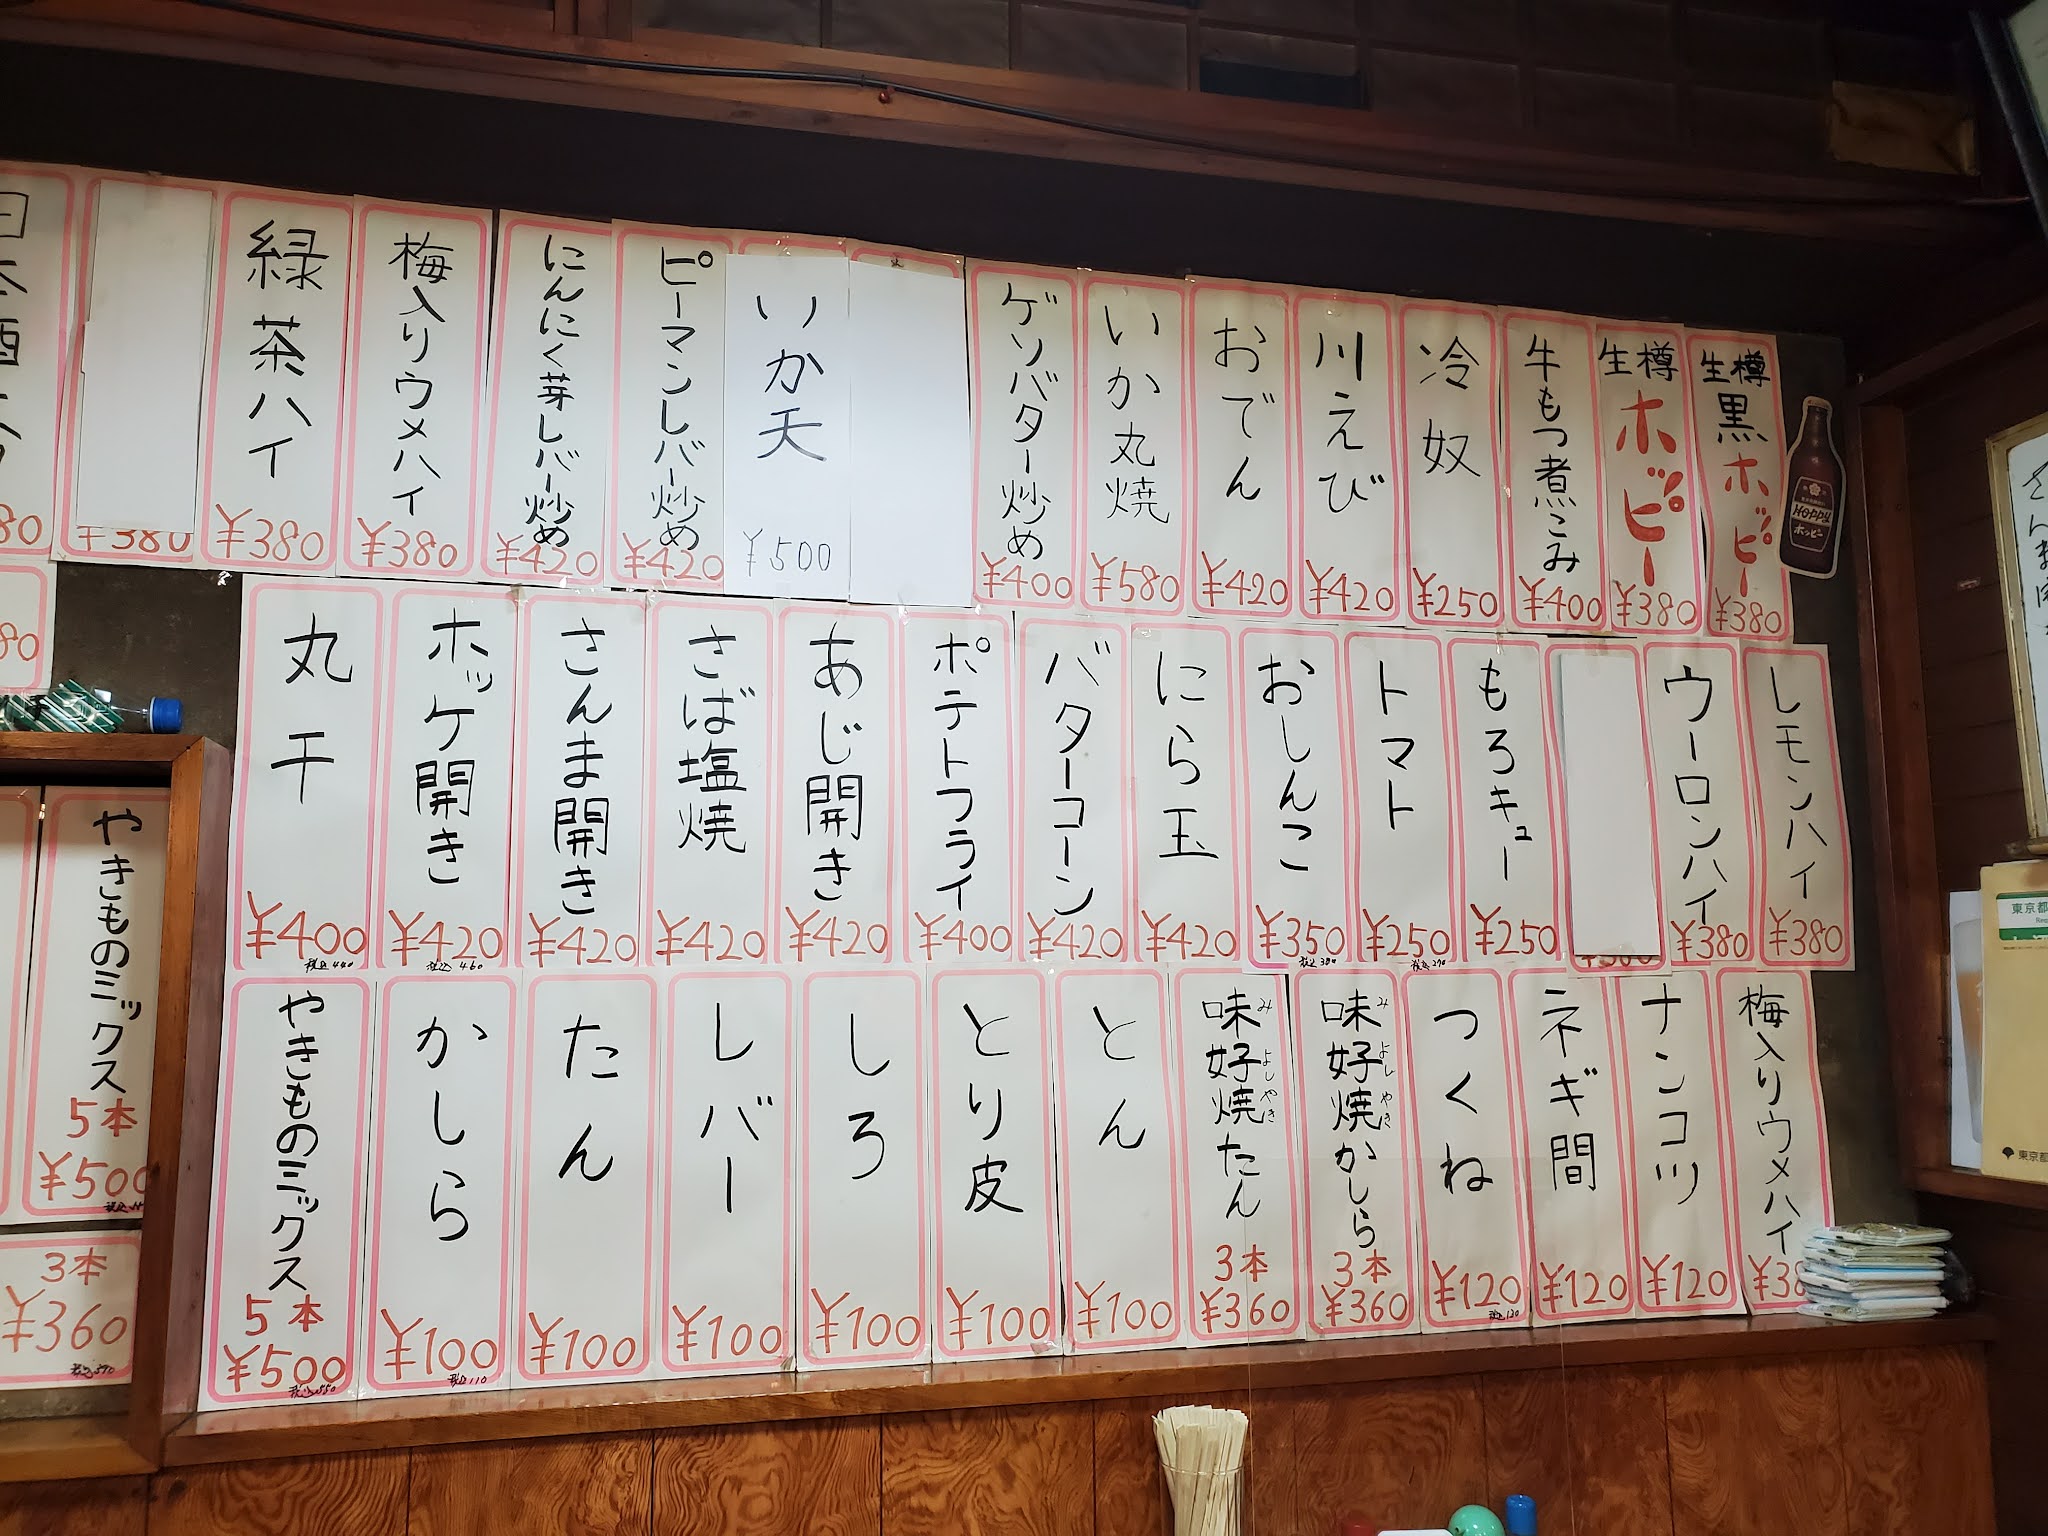 生樽
黒
ホッピー
¥380
生樽
ホッピー
¥380
牛もつ煮こみ
¥400
冷奴
¥250
川えび
¥420
おでん
¥420
いか丸焼
¥580
ゲソバター炒め
¥400
いか天
¥500
ピーマンレバー炒め
¥420
にんにく芽レバー炒め
¥420
梅入りウメハイ
¥380
緑茶ハイ
¥380
¥380
HOPPY
ホッピー
レモンハイ
¥380
ウーロンハイ
¥380
もろキュー
¥250
トマト
¥250
税込270
おしんこ
¥350
税込380
にら玉
¥420
バターコーン
¥420
ポテトフライ
¥400
あじ開き
¥420
さば塩焼
¥420
さんま開き
¥420
ホッケ開き
¥420
税込460
丸干
¥400
税込440
梅入りウメハイ
¥38
ナンコツ
¥120
ネギ間
¥120
つくね
¥120
税込130
味好焼かしら
みよしやき
3本
¥360
味好焼たん
みよしやき
3本
¥360
とん
¥100
とり皮
¥100
しろ
¥100
レバー
¥100
たん
¥100
かしら
¥100
税込110
やきものミックス
5本
¥500
税込550
やきものミックス
5本
¥500
3本
¥360
東京都
東京都